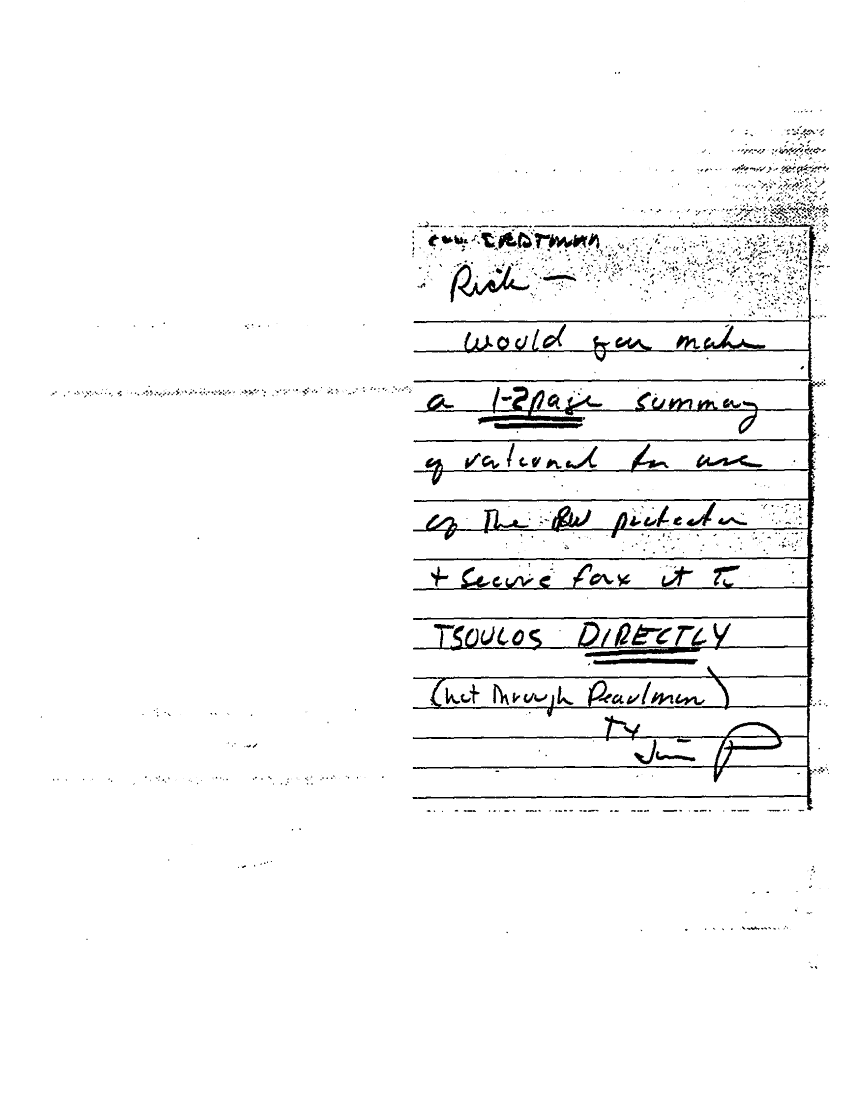 Rick —
would you make
a 1-2 page summary
of rational for use
of the BW protector
+ secure fax it to
TSOULOS DIRECTLY
(not through Pearlman)
Tx
Jim P